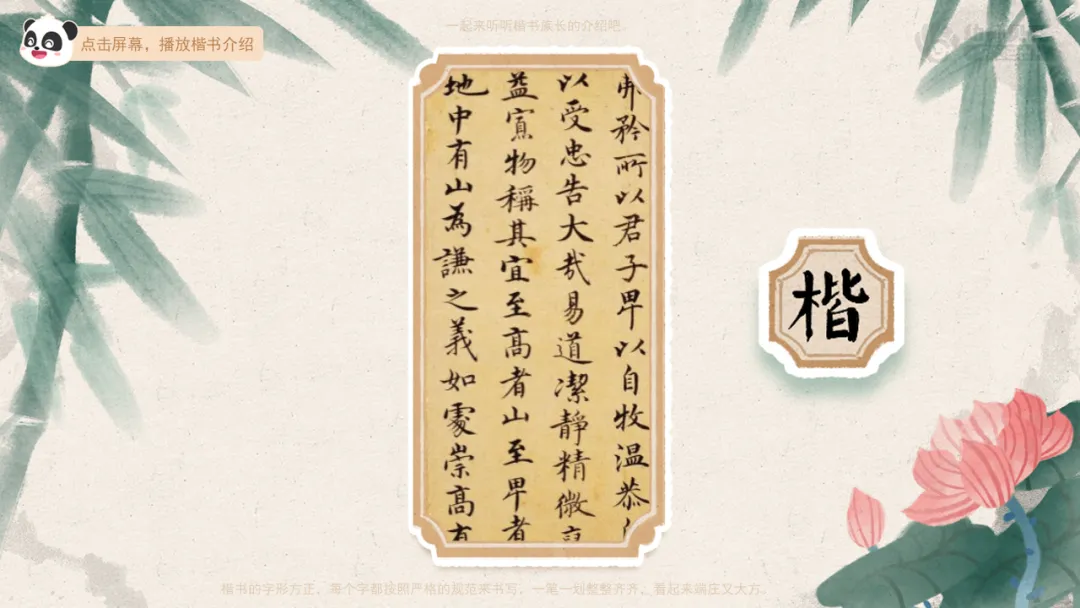 点击屏幕，播放楷书介绍
一起来听听楷书家长的介绍吧
矜所以君子卑以自牧温恭
以受忠告大哉易道潔静精微
益寡物稱其宜至高者山至卑者
地中有山為謙之義如處崇高
楷
楷书的字形方正，每个字都按照严格的规范来书写，一笔一划整整齐齐，看起来端庄又大方。